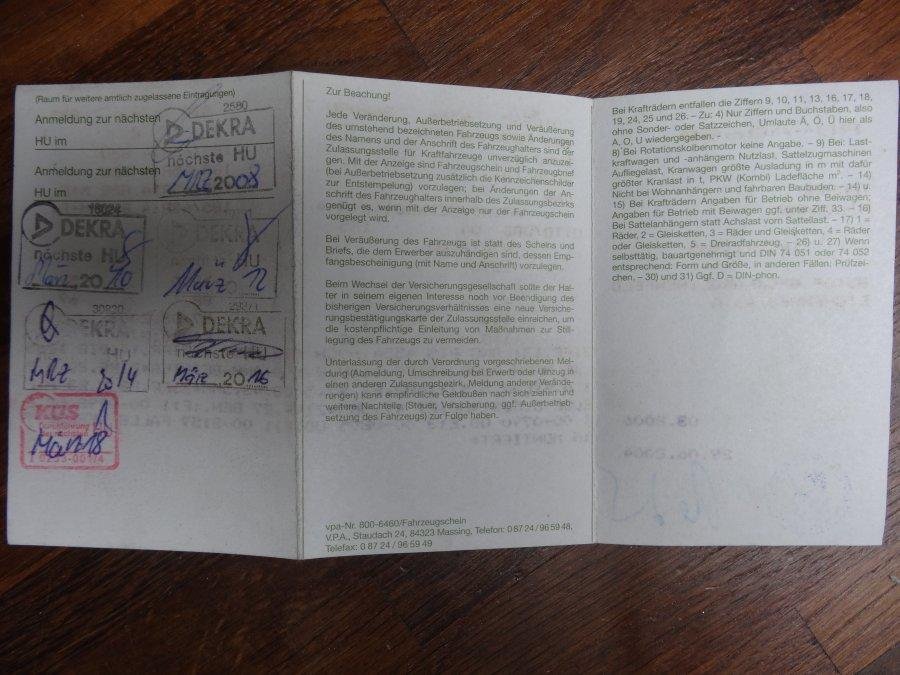 (Raum für weitere amtlich zugelassene Eintragungen)
Anmeldung zur nächsten
HU im
Anmeldung zur nächsten
HU im
2580
DEKRA
nächste HU
MRZ 2008
16024
DEKRA
nächste HU
März 2010
DEKRA
März 12
30820
DEKRA
HU
MRZ 2014
DEKRA
nächste HU
März 2016
KÜS
März 18
Zur Beachung!
Jede Veränderung, Außerbetriebsetzung und Veräußerung
des umstehend bezeichneten Fahrzeugs sowie Änderungen
des Namens und der Anschrift des Fahrzeughalters sind der
Zulassungsstelle für Kraftfahrzeuge unverzüglich anzuzei-
gen. Mit der Anzeige sind Fahrzeugschein und Fahrzeugbrief
(bei Außerbetriebsetzung zusätzlich die Kennzeichenschilder
zur Entstempelung) vorzulegen; bei Änderungen der An-
schrift des Fahrzeughalters innerhalb des Zulassungsbezirks
genügt es, wenn mit der Anzeige nur der Fahrzeugschein
vorgelegt wird.
Bei Veräußerung des Fahrzeugs ist statt des Scheins und
Briefs, die dem Erwerber auszuhändigen sind, dessen Emp-
fangsbescheinigung (mit Name und Anschrift) vorzulegen.
Beim Wechsel der Versicherungsgesellschaft sollte der Hal-
ter in seinem eigenen Interesse noch vor Beendigung des
bisherigen Versicherungsverhältnisses eine neue Versiche-
rungsbestätigungskarte der Zulassungsstelle einreichen, um
die kostenpflichtige Einleitung von Maßnahmen zur Still-
legung des Fahrzeugs zu vermeiden.
Unterlassung der durch Verordnung vorgeschriebenen Mel-
dung (Abmeldung, Umschreibung bei Erwerb oder Umzug in
einen anderen Zulassungsbezirk, Meldung anderer Verände-
rungen) kann empfindliche Geldbußen nach sich ziehen und
weitere Nachteile (Steuer, Versicherung, ggf. Außerbetrieb-
setzung des Fahrzeugs) zur Folge haben.
vpa-Nr. 800-6460/Fahrzeugschein
V.P.A., Staudach 24, 84323 Massing, Telefon: 0 87 24 / 96 59 48,
Telefax: 0 87 24 / 96 59 49
Bei Krafträdern entfallen die Ziffern 9, 10, 11, 13, 16, 17, 18,
19, 24, 25 und 26. – Zu: 4) Nur Ziffern und Buchstaben, also
ohne Sonder- oder Satzzeichen, Umlaute Ä, Ö, Ü hier als
A, O, U wiedergegeben. –
8) Bei Rotationskolbenmotor keine Angabe. – 9) Bei: Last-
kraftwagen und -anhängern Nutzlast, Sattelzugmaschinen
Aufliegelast, Kranwagen größte Ausladung in m mit dafür
größter Kranlast in t, PKW (Kombi) Ladefläche m². – 14)
Nicht bei Wohnanhängern und fahrbaren Baubuden. – 14) u.
15) Bei Krafträdern Angaben für Betrieb ohne Beiwagen;
Angaben für Betrieb mit Beiwagen ggf. unter Ziff. 33. – 16)
Bei Sattelanhängern statt Achslast vom Sattellast. – 17) 1 =
Räder, 2 = Gleisketten, 3 = Räder und Gleisketten, 4 = Räder
oder Gleisketten, 5 = Dreiradfahrzeug. – 26) u. 27) Wenn
selbsttätig, bauartgenehmigt und DIN 74 051 oder 74 052
entsprechend: Form und Größe, in anderen Fällen: Prüfzei-
chen. – 30) und 31) Ggf. D = DIN-phon.